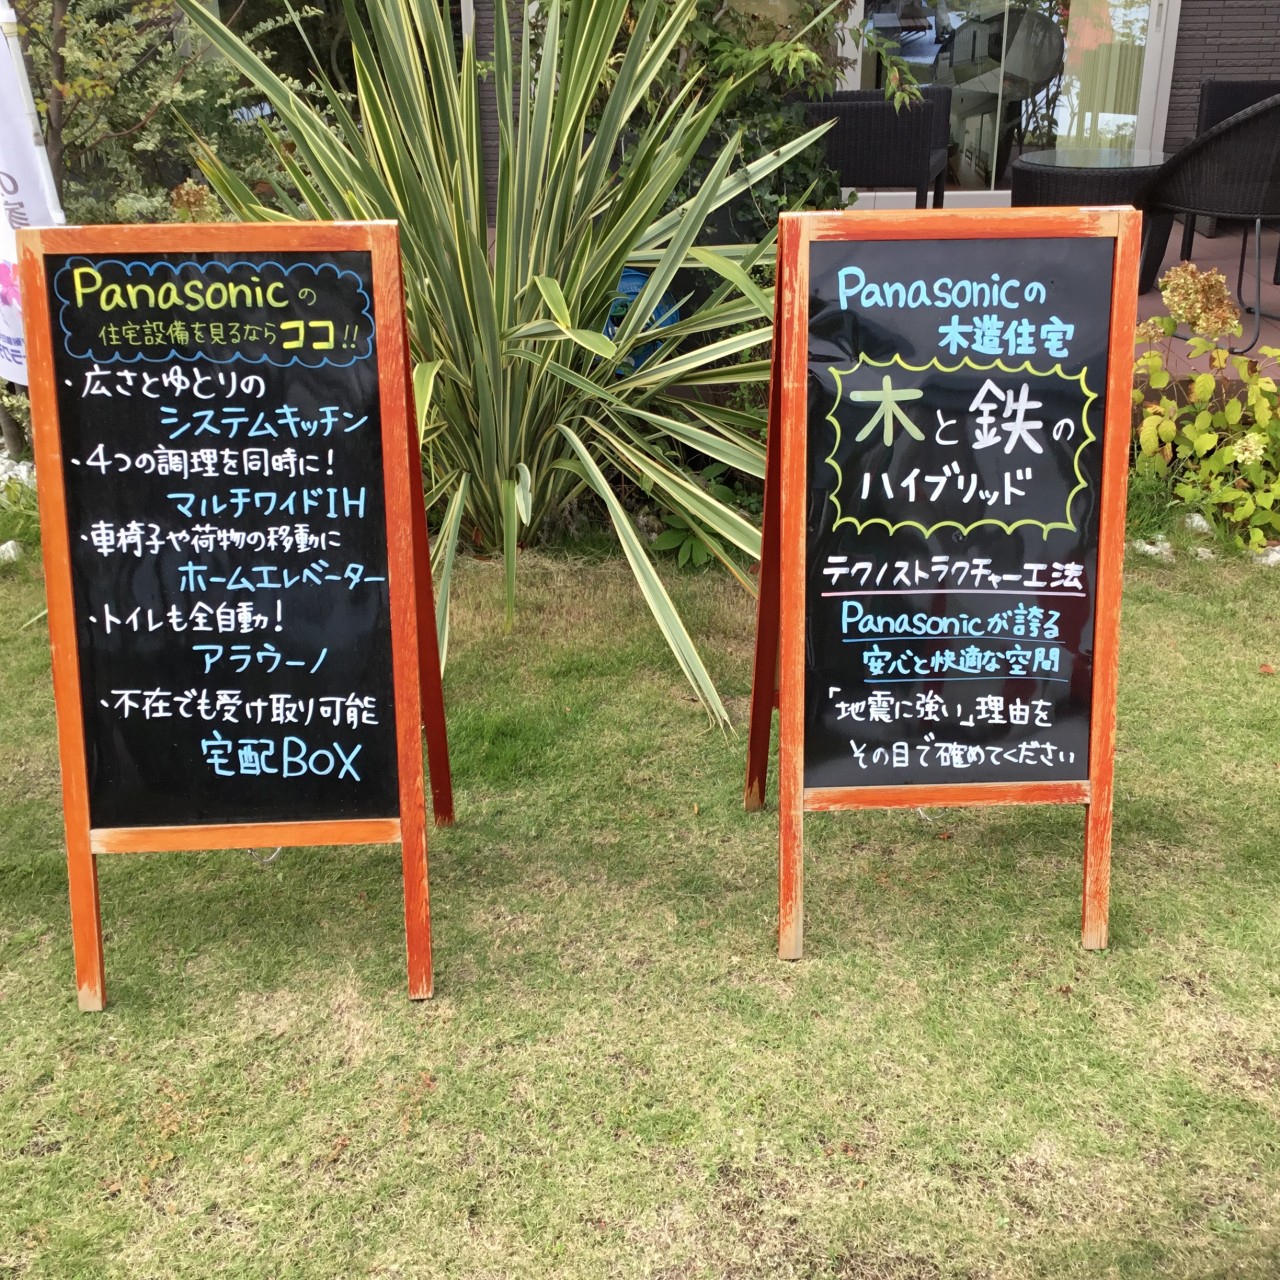 Panasonicの
住宅設備を見るならココ!!
・広さとゆとりの
システムキッチン
・4つの調理を同時に!
マルチワイドIH
・車椅子や荷物の移動に
ホームエレベーター
・トイレも全自動!
アラウーノ
・不在でも受け取り可能
宅配BOX
Panasonicの
木造住宅
木と鉄の
ハイブリッド
テクノストラクチャー工法
Panasonicが誇る
安心と快適な空間
「地震に強い」理由を
その目で確めてください